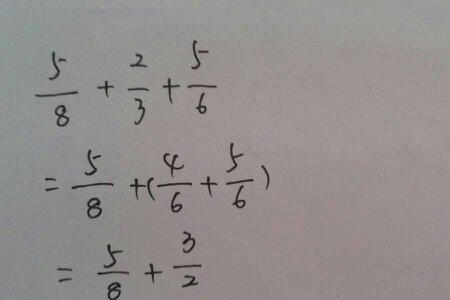 5/8 + 2/3 + 5/6
= 5/8 + (4/6 + 5/6)
= 5/8 + 3/2